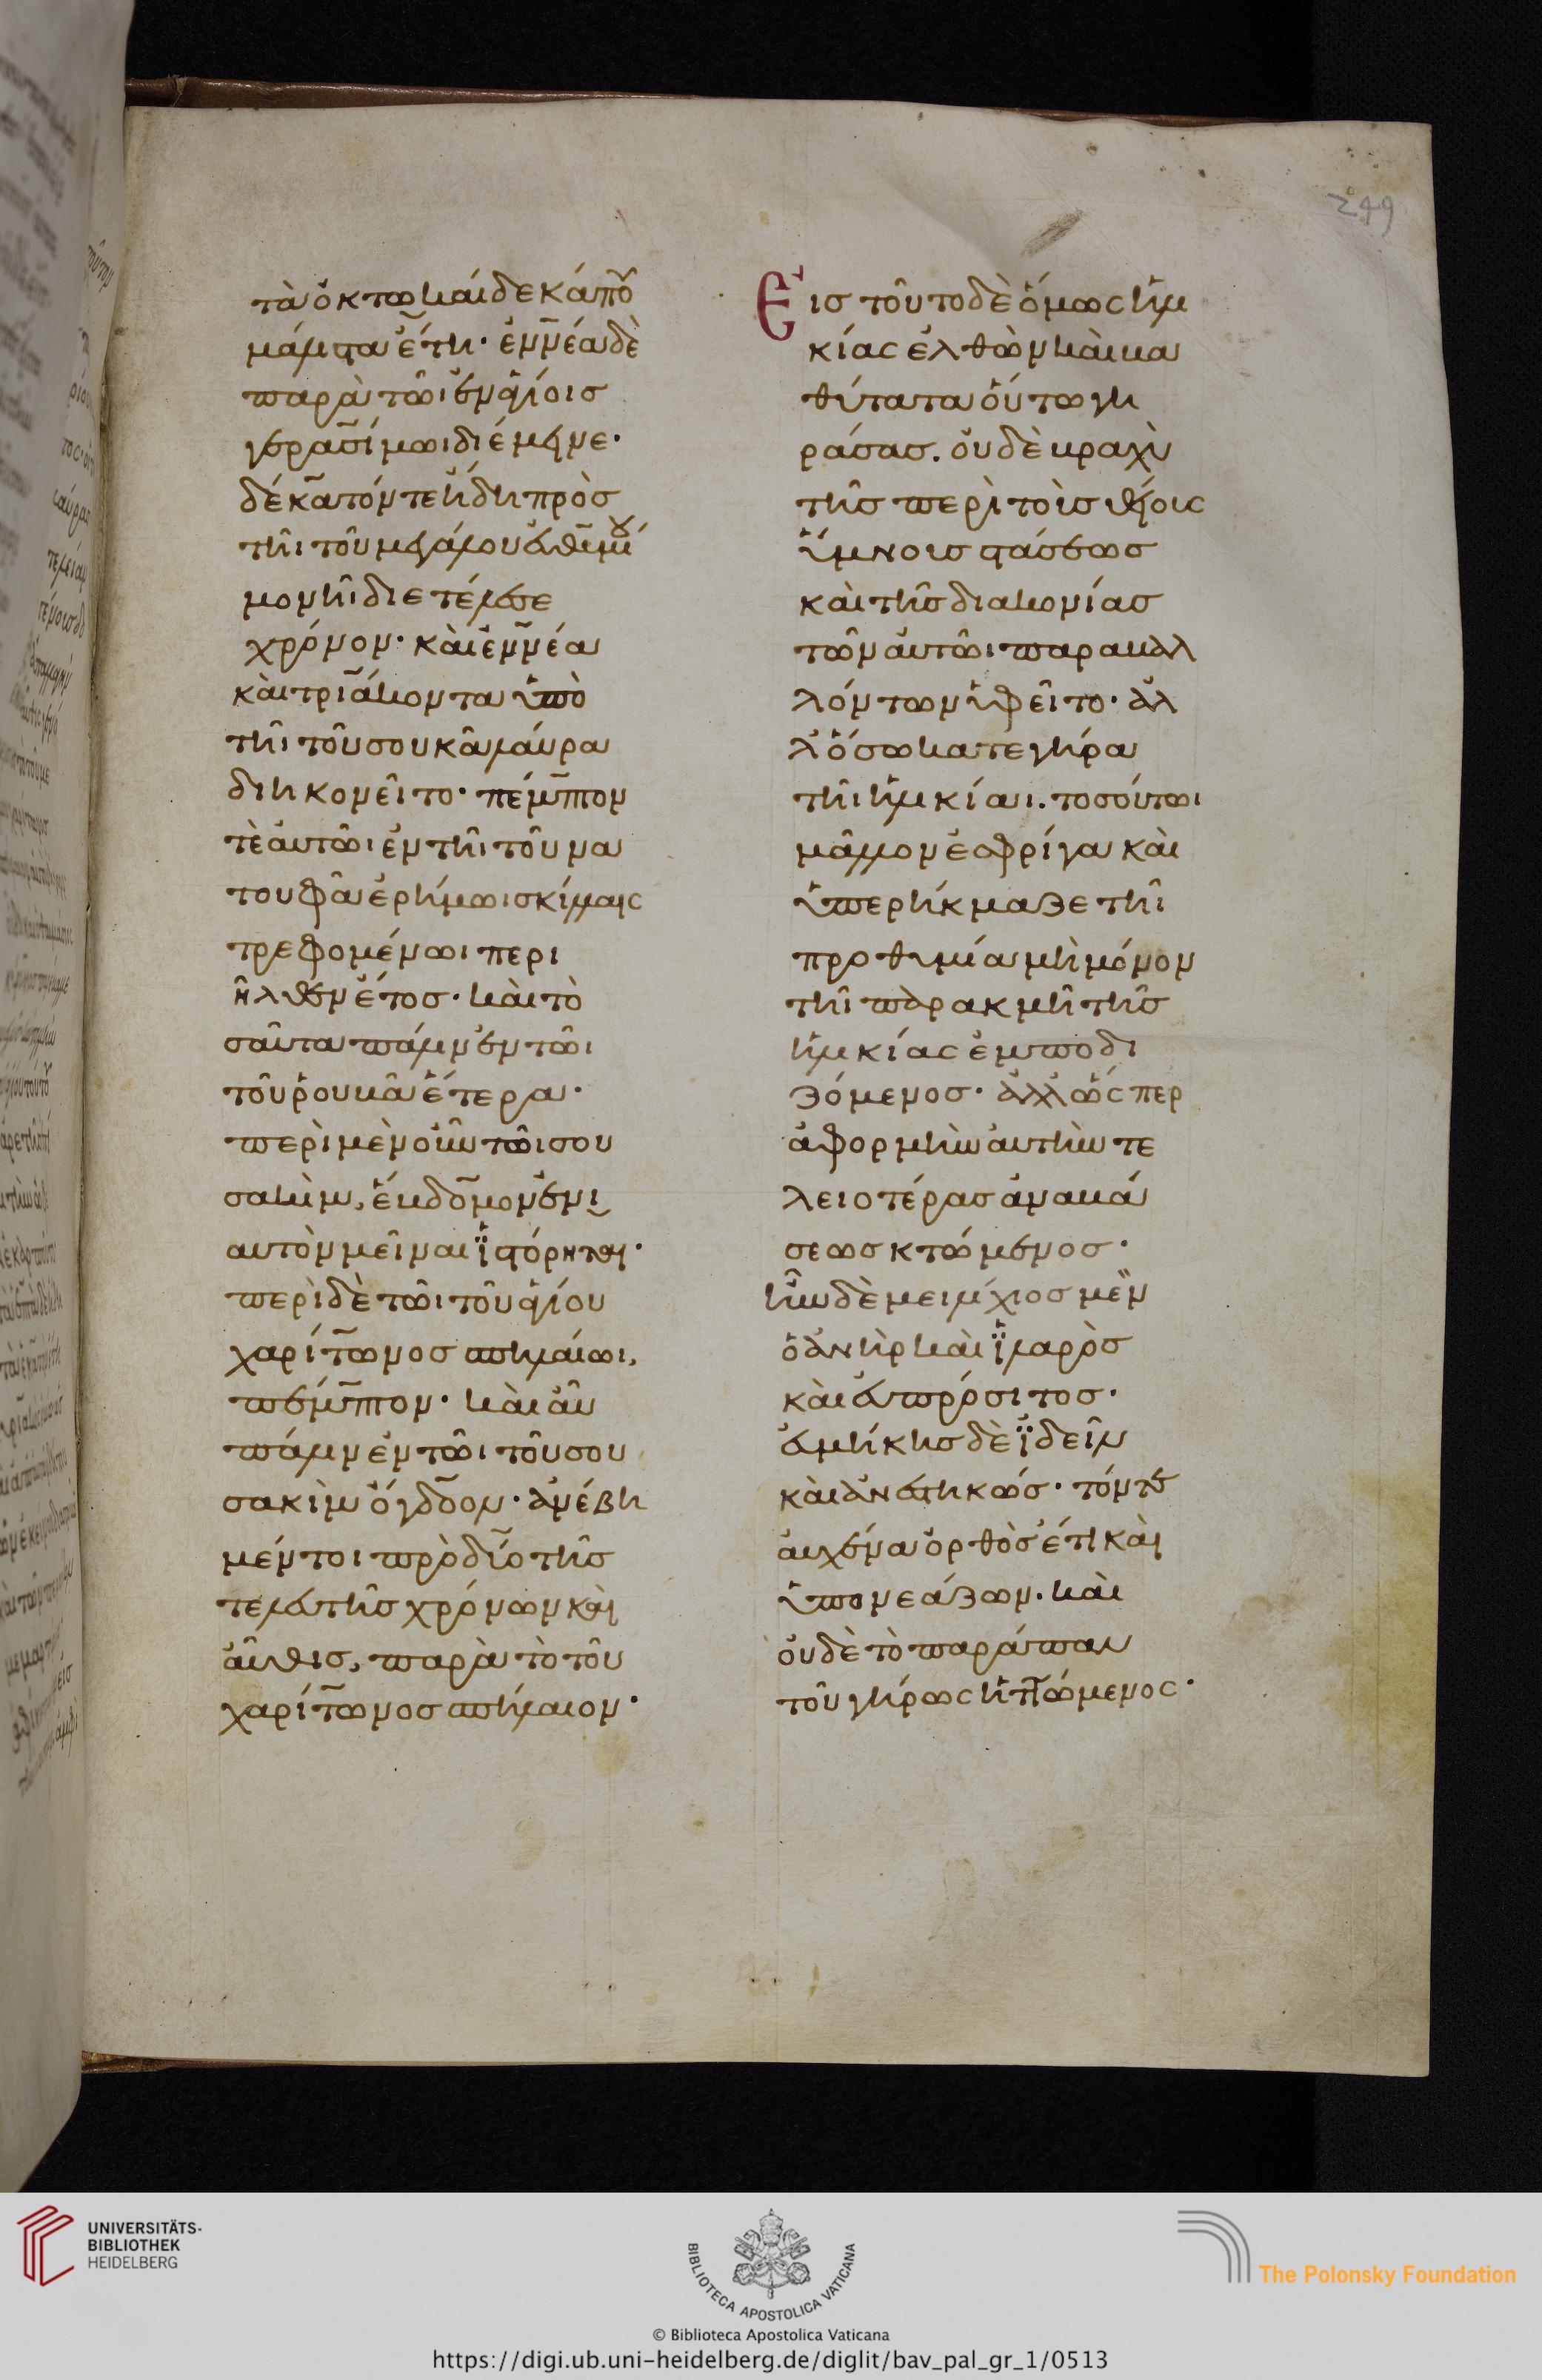 τὰ ὀκτωκαίδεκά που
μάλιστα ἔτη· ἐννέα δὲ
παρὰ τῶι ἐν ἁγίοισ
γερασίμωι διέμεινε·
δέκατόν τε ἤδη πρὸσ
τῆι τοῦ μεγάλου εὐθυμίου
μονῆι διετέλεσε
χρόνον· καὶ ἐννέα
καὶ τριάκοντα ὑπὸ
τῆι τοῦ σουκᾶ λαύρα
διηκονεῖτο· πέμπτον
τὲ αὐτῶι ἐν τῆι τοῦ να
τουφᾶ ἐρήμωι σκίλλαις
τρεφομένωι περι
ῆλθεν ἔτοσ· καὶ το
σαῦτα πάλιν ἐν τῶι
τοῦ ῥουβᾶ ἕτερα·
περὶ μὲν οὖν τῶι σου
σακὶμ, ἕβδομον ἐνι
αυτὸν μεῖναι ἱστόρηται·
περὶ δὲ τῶι τοῦ ἁγίου
χαρίτωνοσ σπηλαίωι,
πέμπτον· καὶ αὖ
πάλιν ἐν τῶι τοῦ σου
σακὶμ ὄγδοον· ἀνέβη
μέντοι πρὸ δύο τῆσ
τελευτῆσ χρόνων καὶ
αὖθισ, παρὰ τὸ τοῦ
χαρίτωνοσ σπήλαιον·
249
Εἰσ τοῦτο δὲ ὅμως ἡλι
κίας ἐλθὼν καὶ βα
θύτατα οὕτω γη
ράσασ. οὐδὲ βραχὺ
τῆσ περὶ τοὺσ θείους
ὕμνουσ στάσεωσ
καὶ τῆσ διακονίασ
τῶν αὐτῶι παραβαλ
λόντων ὑφεῖτο· ἀλ
λ' ὅσω κατεγήρα
τῆι ἡλικίαι. τοσούτωι
μᾶλλον ἐσφρίγα καὶ
ὑπερήκμαζε τῆι
προθυμία μὴ μόνον
τῆι παρακμῆι τῆσ
ἡλικίας ἐμποδι
ζόμενοσ· ἀλλ' ὥσπερ
ἀφορμὴν αὐτὴν τε
λειοτέρασ ἀναβά
σεωσ κτώμενοσ·
ἦν δὲ μειλίχιοσ μὲν
ὁ ἀνὴρ καὶ ἱλαρὸσ
καὶ εὐπρόσιτοσ·
εὐμήκησ δὲ ἰδεῖν
καὶ ἀνεστηκώσ· τόν τε
αὐχένα ὀρθὸσ ἔτι καὶ
ὑπονεάζων· καὶ
οὐδὲ τὸ παράπαν
τοῦ γήρως ἡττώμενος·
UNIVERSITÄTS-
BIBLIOTHEK
HEIDELBERG
BIBLIOTECA APOSTOLICA VATICANA
The Polonsky Foundation
© Biblioteca Apostolica Vaticana
https://digi.ub.uni-heidelberg.de/diglit/bav_pal_gr_1/0513